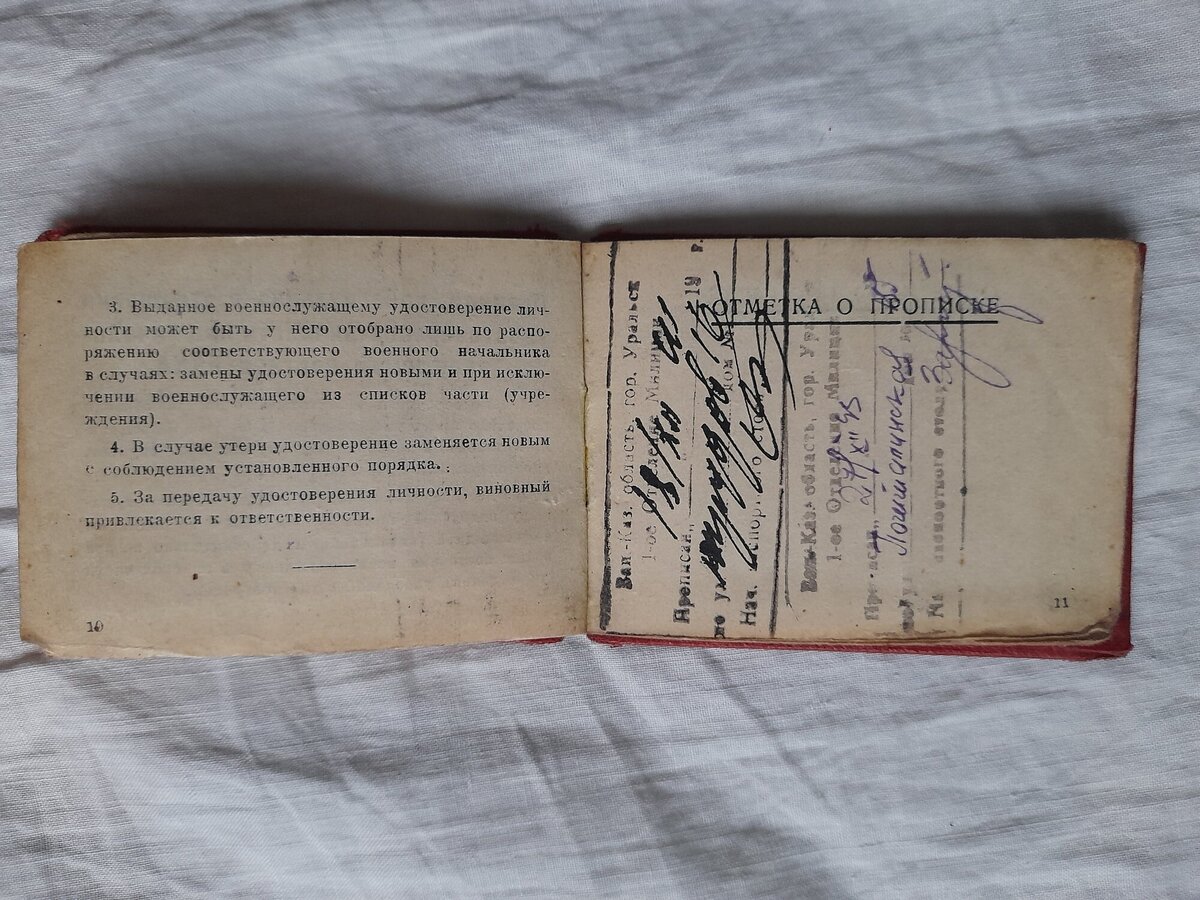 3. Выданное военнослужащему удостоверение лич-
ности может быть у него отобрано лишь по распо-
ряжению соответствующего военного начальника
в случаях: замены удостоверения новыми и при исклю-
чении военнослужащего из списков части (учре-
ждения).
4. В случае утери удостоверение заменяется новым
с соблюдением установленного порядка.
5. За передачу удостоверения личности, виновный
привлекается к ответственности.
10
ОТМЕТКА О ПРОПИСКЕ
Зап.-Каз. область, гор. Уральск
1-ое Отделение Милиции
Прописан 19 г.
по ул. дом №
Нач.
Зап.-Каз. область, гор.
1-ое Отделение Милиции
27/XII 45
паспортного стола
11